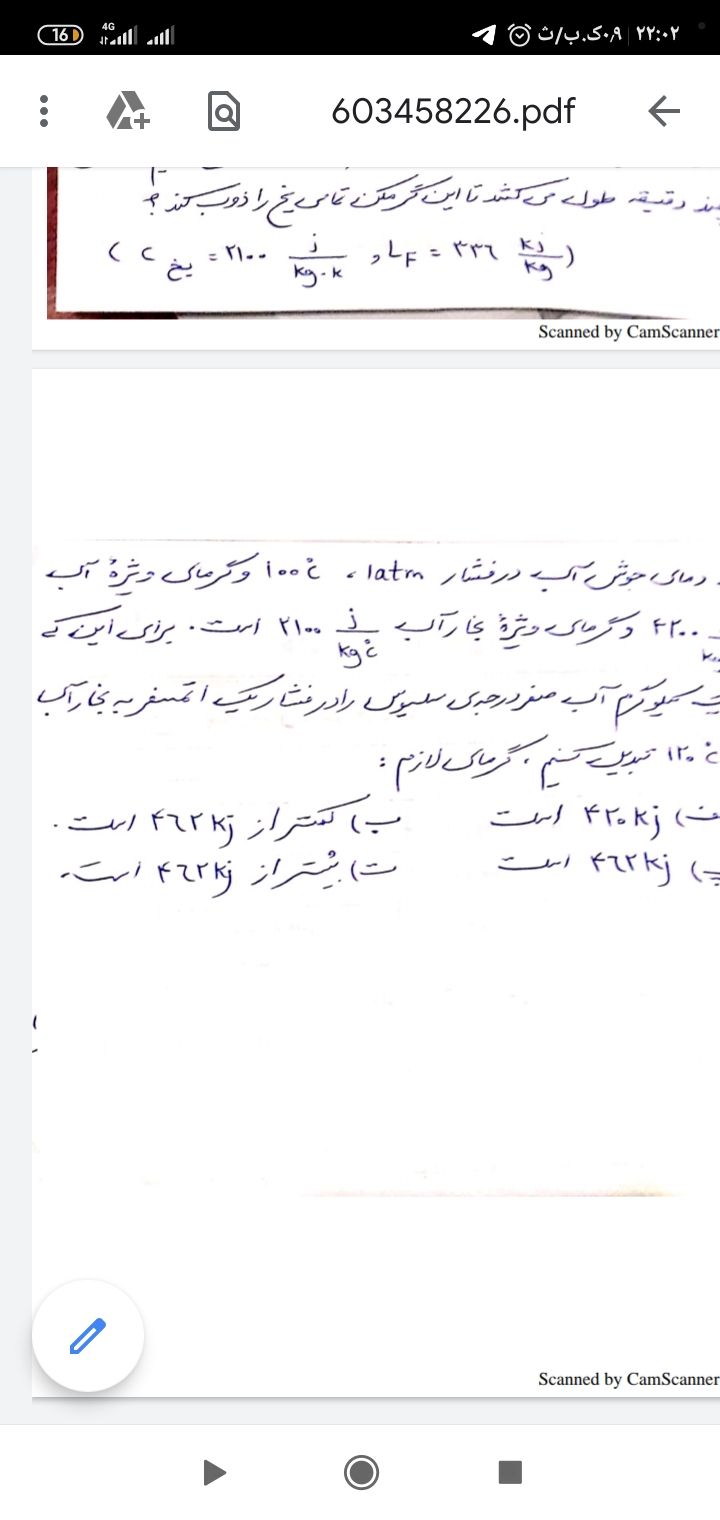 16 4G ۰٫۹ک.ب/ث ۲۲:۰۲
603458226.pdf
دقیقه طول می‌کشد تا این گرمکن تمامی یخ را ذوب کند ؟
( C یخ = ۲۱۰۰ j/kg·k , LF = ۳۳۶ kj/kg )
Scanned by CamScanner
دمای جوش آب در فشار 1atm ، ۱۰۰°c و گرمای ویژهٔ آب
۴۲۰۰ و گرمای ویژهٔ بخار آب ۲۱۰۰ j/kg°c است . برای این که
کیلوگرم آب صفر درجه‌ی سلسیوس را در فشار یک اتمسفر به بخار آب
۱۲۰°c تبدیل کنیم ، گرمای لازم :
ف) ۴۲۰kj است ب) کمتر از ۴۶۲kj است .
پ) ۴۶۲kj است ت) بیشتر از ۴۶۲kj است .
Scanned by CamScanner